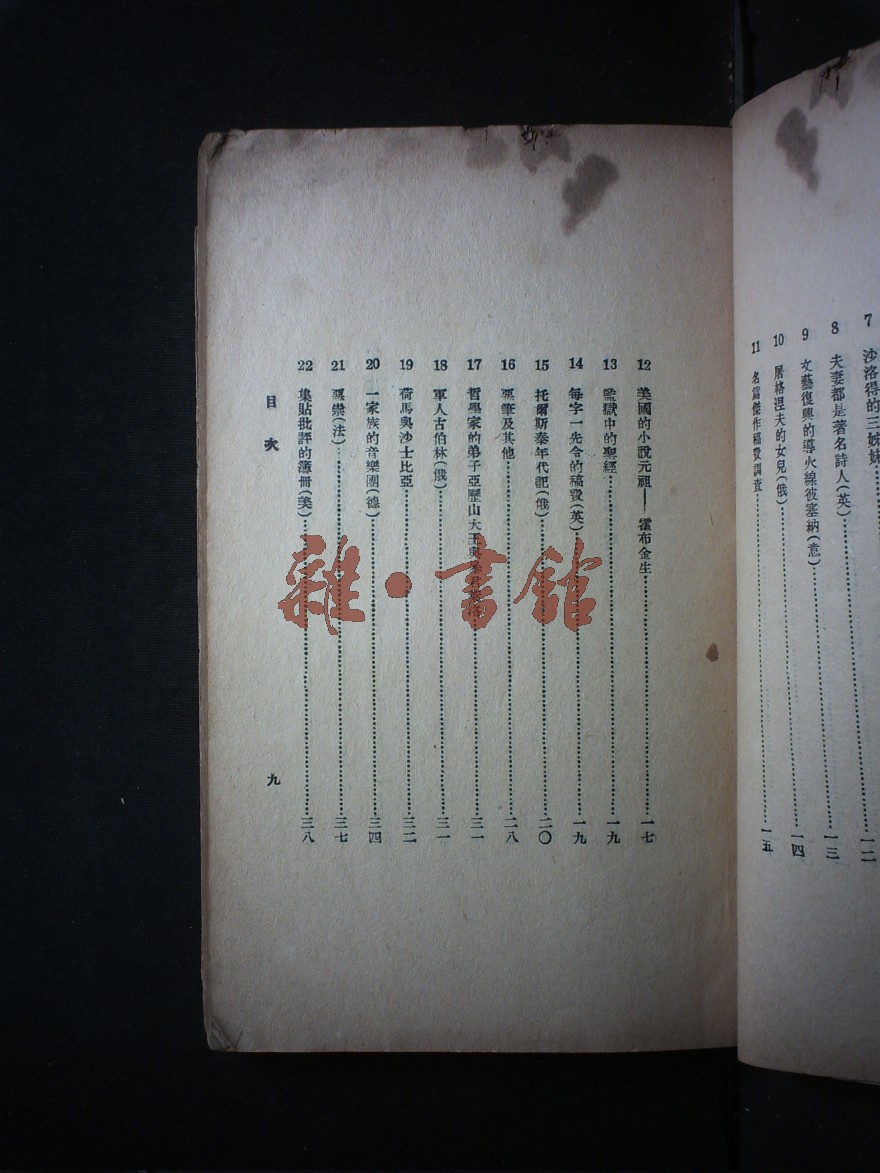 7 沙洛得的三姊妹 一二
8 夫妻都是著名詩人(英) 一三
9 文藝復興的導火線彼塞納(意) 一四
10 屠格涅夫的女兒(俄)
11 名篇傑作稿費調查 一五
12 美國的小說元祖——霍布金生 一七
13 監獄中的聖經 一九
14 每字一先令的稿費(英) 一九
15 托爾斯泰年代記(俄) 二〇
16 惡筆及其他 二八
17 哲學家的弟子亞歷山大王與 三一
18 軍人古伯林(俄) 三一
19 荷馬與沙士比亞 三二
20 一家族的音樂團(德) 三四
21 惡祟(法) 三七
22 集貼批評的簿冊(美) 三八
目次
九
雜·書館